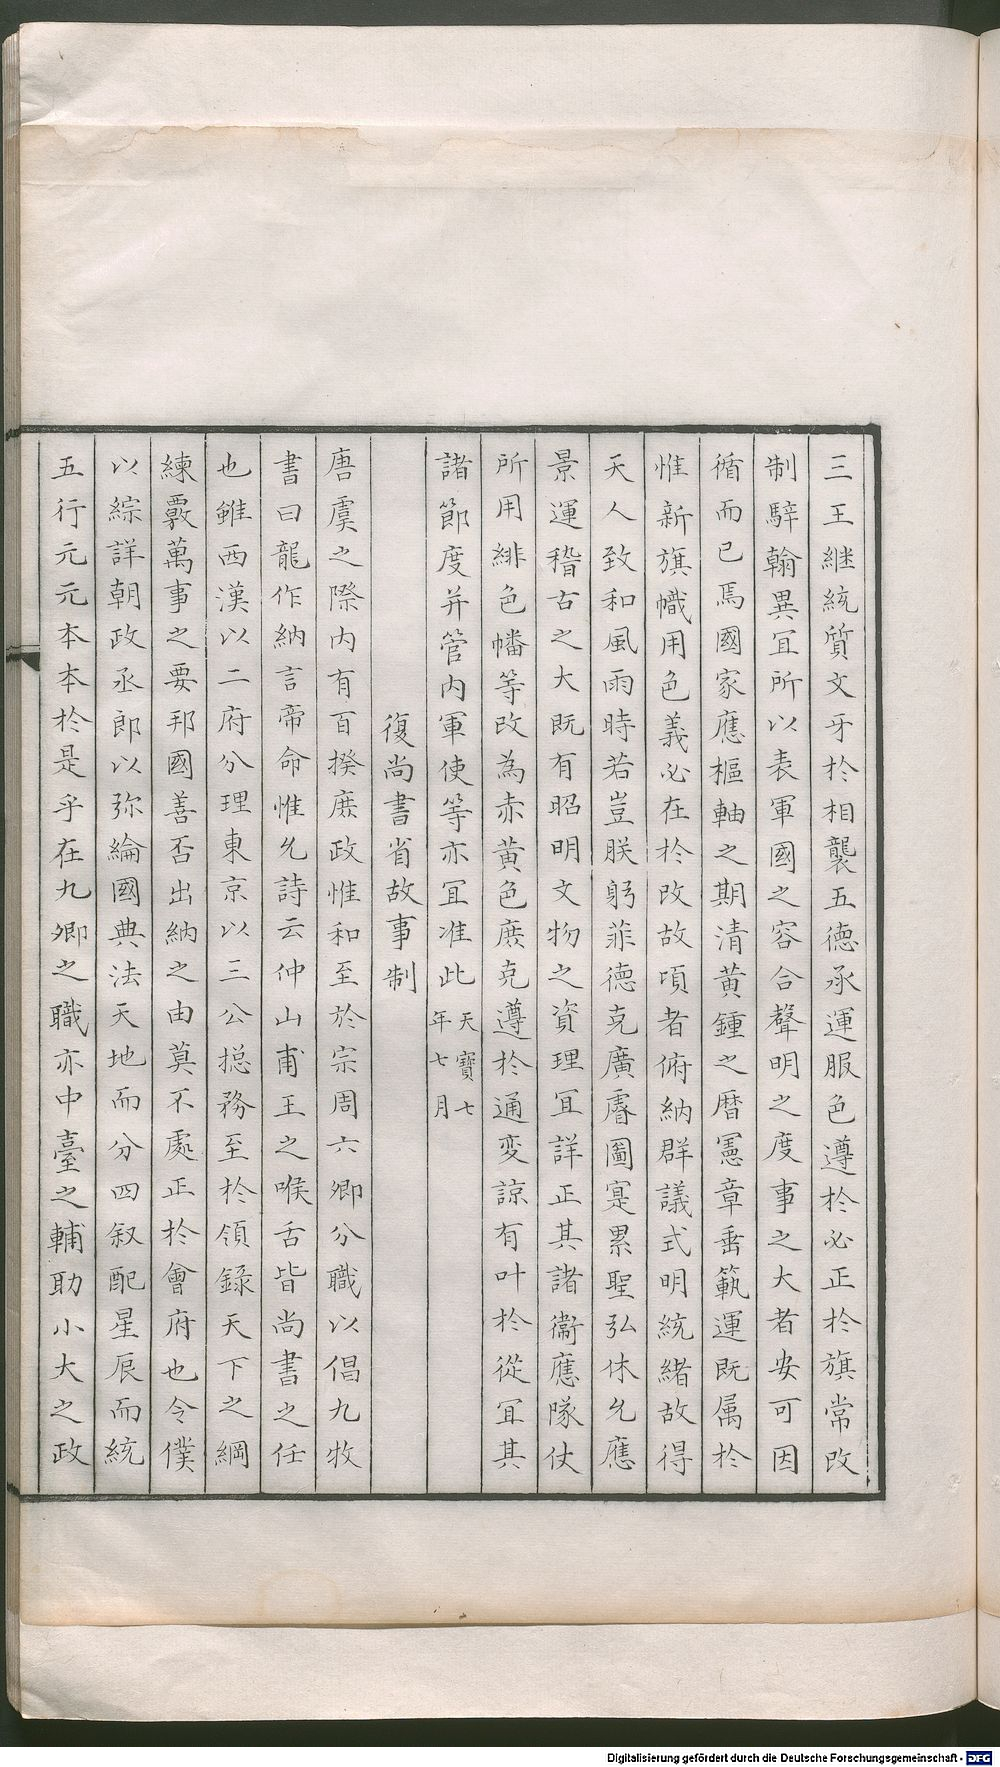 三王継統質文牙於相襲五德承運服色遵於必正於旗常改
制騂翰異冝所以表軍國之容合聲明之度事之大者安可因
循而已焉國家應樞軸之期清黃鍾之曆憲章垂範運既属於
惟新旗幟用色義必在於改故頃者俯納群議式明統緒故得
天人致和風雨時若豈朕躬菲德克廣膺圖寔累聖弘休允應
景運稽古之大既有昭明文物之資理冝詳正其諸衞應隊仗
所用緋色幡等改為赤黃色庶克遵於通変諒有叶於從冝其
諸節度并管内軍使等亦冝准此天寶七年七月
復尚書省故事制
唐虞之際内有百揆庶政惟和至於宗周六卿分職以倡九牧
書曰龍作納言帝命惟允詩云仲山甫王之喉舌皆尚書之任
也雖西漢以二府分理東京以三公揔務至於領錄天下之綱
練覈萬事之要邦國善否出納之由莫不處正於會府也令僕
以綜詳朝政丞郎以弥綸國典法天地而分四叙配星辰而統
五行元元本本於是乎在九卿之職亦中臺之輔助小大之政
Digitalisierung gefördert durch die Deutsche Forschungsgemeinschaft - DFG